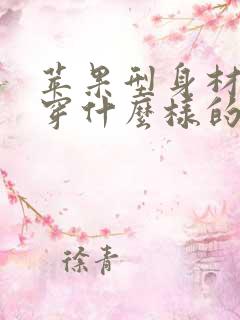 苹果型身材
穿什麽样的
徐青